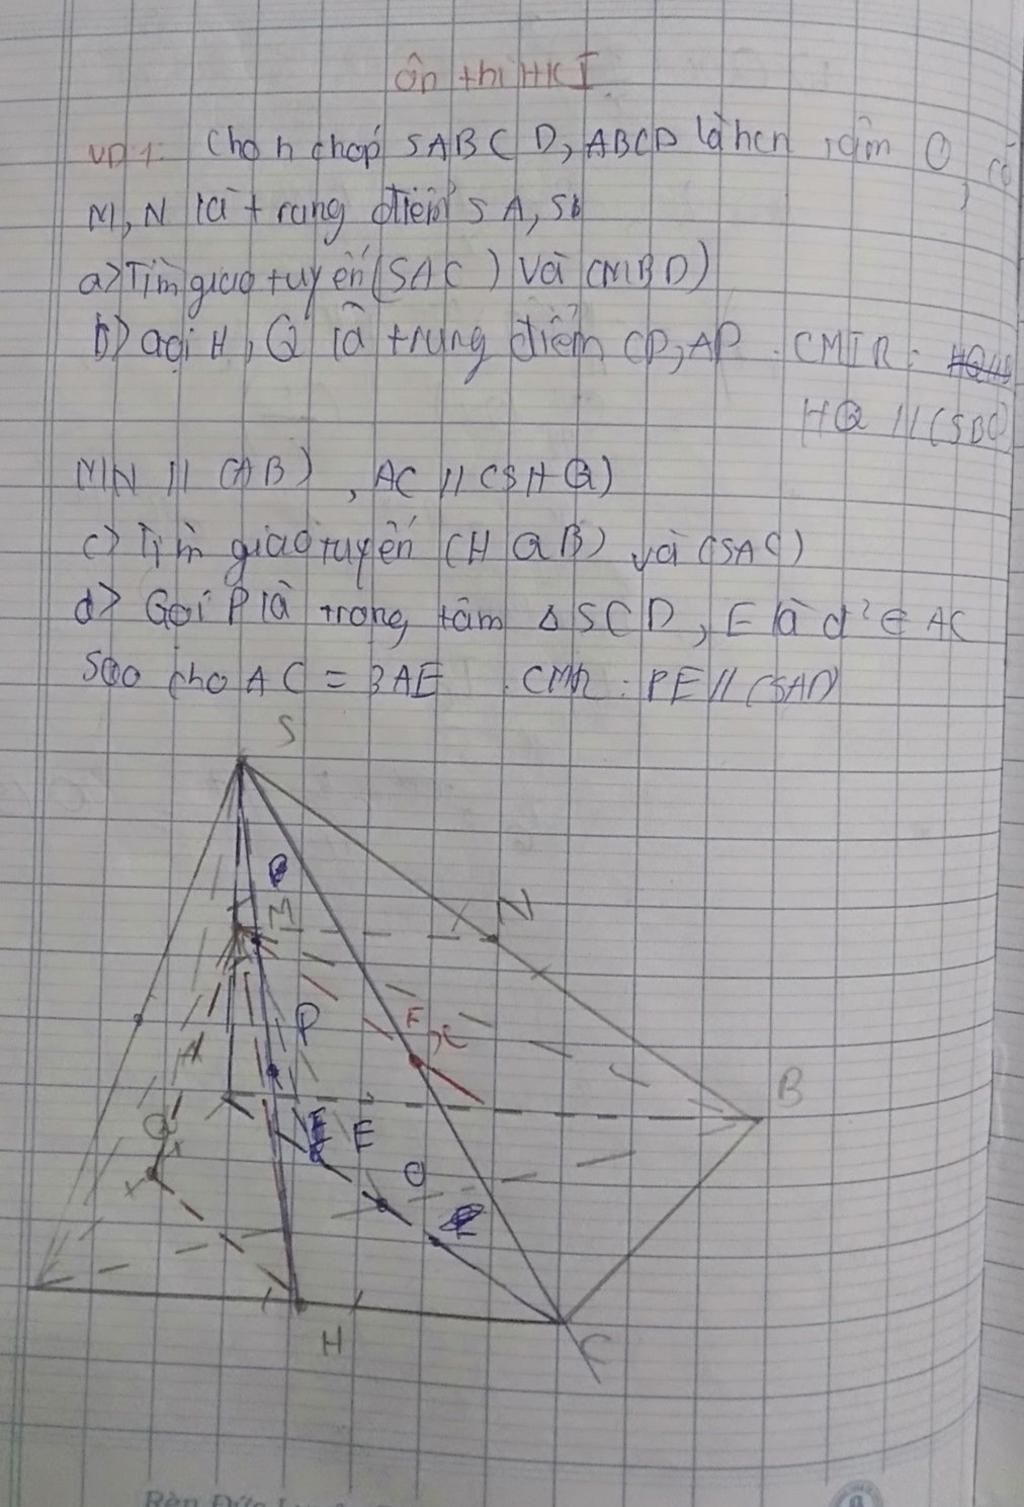 Ôn thi HK I
VD1: Cho h chóp SABCD, ABCD là hcn tâm O, có
M, N là trung điểm SA, SB
a> Tìm giao tuyến (SAC) và (MBD)
b> Gọi H, Q là trung điểm CD, AD. CMTR:
HQ // (SBC)
MN // (AB), AC // (SHQ)
c> Tìm giao tuyến (HQB) và (SAC)
d> Gọi P là trọng tâm Δ SCD, E là đ² ∈ AC
Sao cho AC = 3AE. CMR: PE // (SAD)
S
M
N
P
F
A
B
Q
E
O
H
C